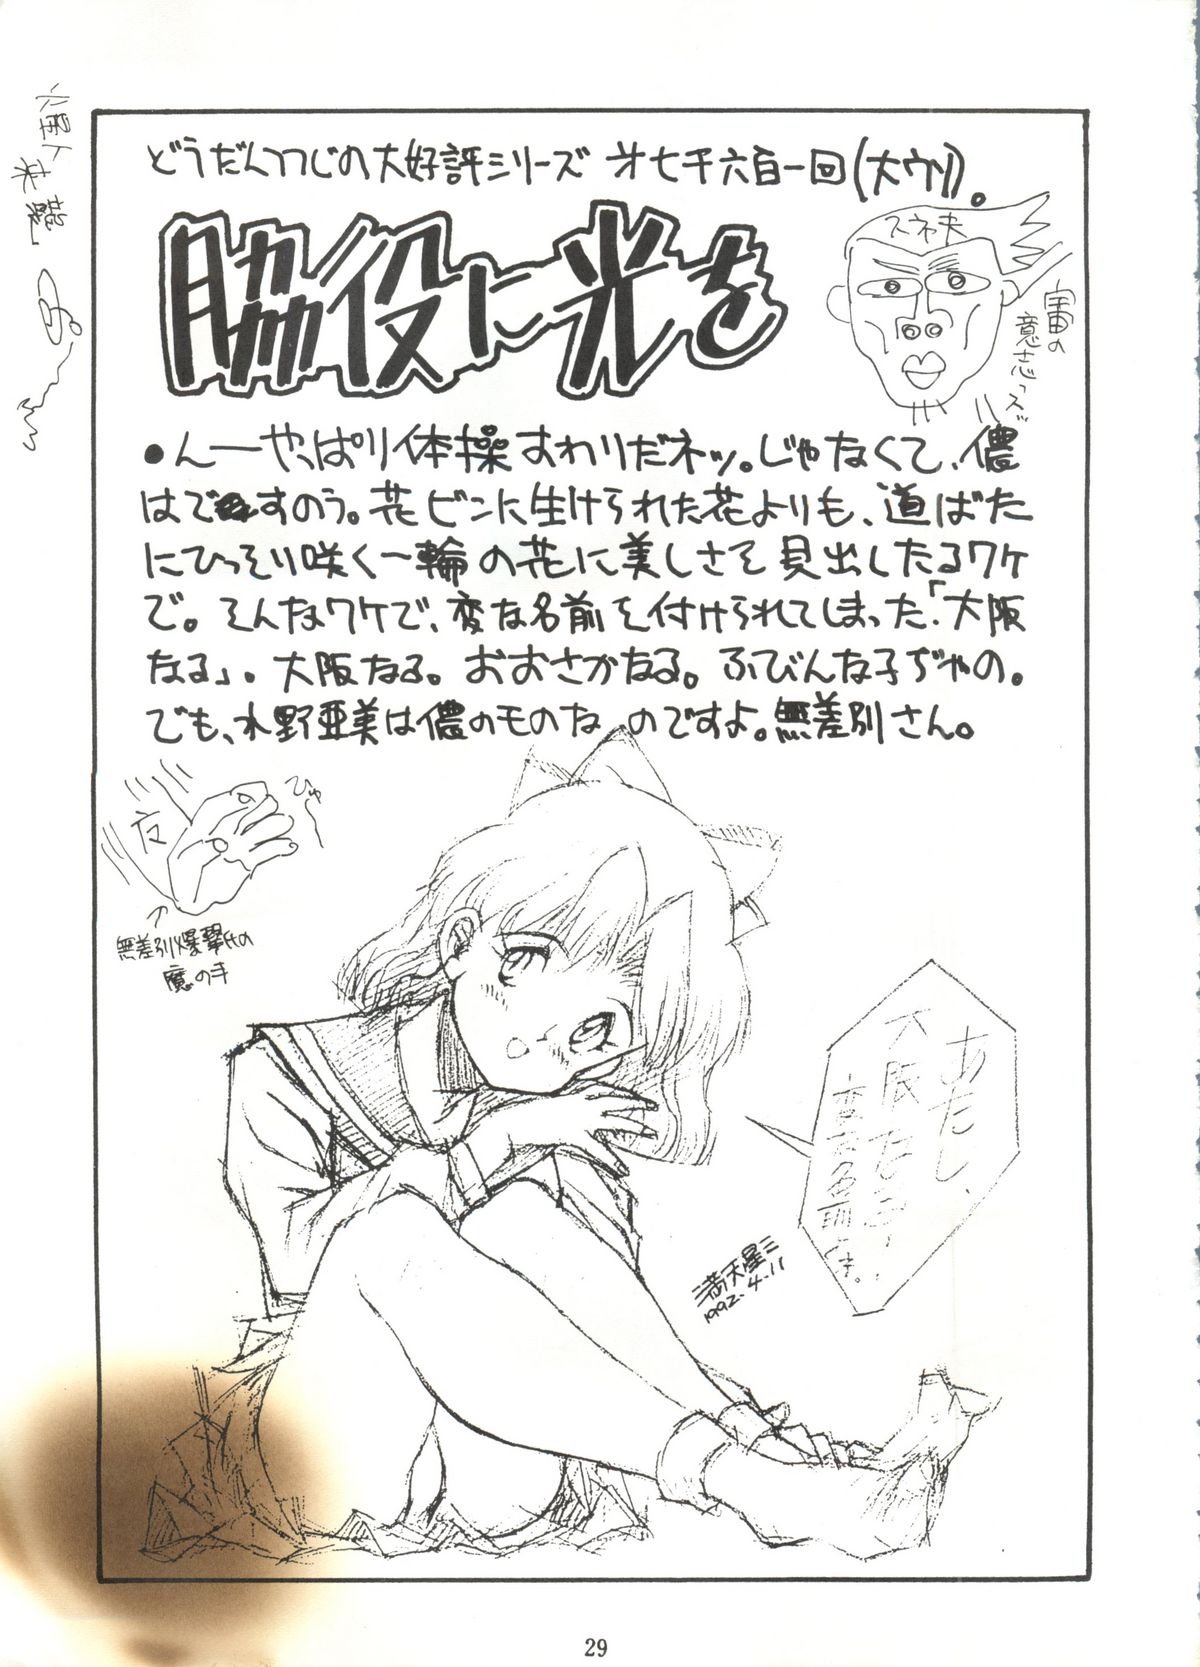 どうだんつつじの大好評シリーズ 才七千六百一回(大ウソ)。
脇役に光を
スネ夫
宇宙の
意志っスッ
●んーやっぱり体操すわりだネッ。じゃなくて、儂
はですのう。花ビンに生けられた花よりも、道ばた
にひっそり咲く一輪の花に美しさを見出したるワケ
で。そんなワケで、変な名前を付けられてしまった「大阪
なる」。大阪なる。おおさかなる。ふびんな子ぢゃの。
でも、水野亜美は儂のものなのですよ。無差別さん。
ひゅ
無差別爆撃氏の
魔の手
あたし、
大阪なる、
変な名前ょ。
満天星三
1992.4.11
29